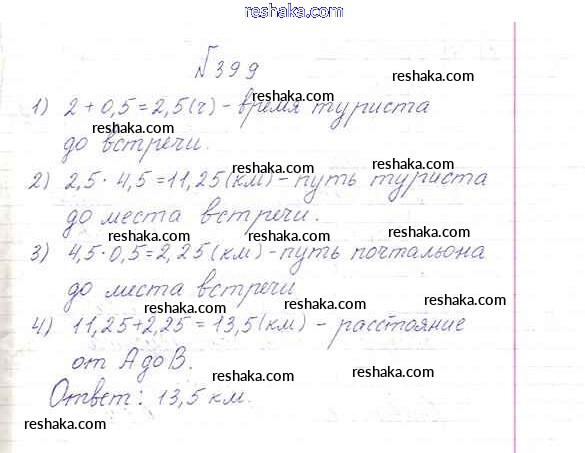 reshaka.com
№399
reshaka.com
1) 2 + 0,5 = 2,5 (ч) - время туриста
reshaka.com reshaka.com
до встречи.
reshaka.com reshaka.com
2) 2,5 · 4,5 = 11,25 (км) - путь туриста
до места встречи.
reshaka.com reshaka.com
3) 4,5 · 0,5 = 2,25 (км) - путь почтальона
до места встречи
reshaka.com reshaka.com
4) 11,25 + 2,25 = 13,5 (км) - расстояние
от А до В.
reshaka.com reshaka.com
Ответ: 13,5 км.
reshaka.com reshaka.com